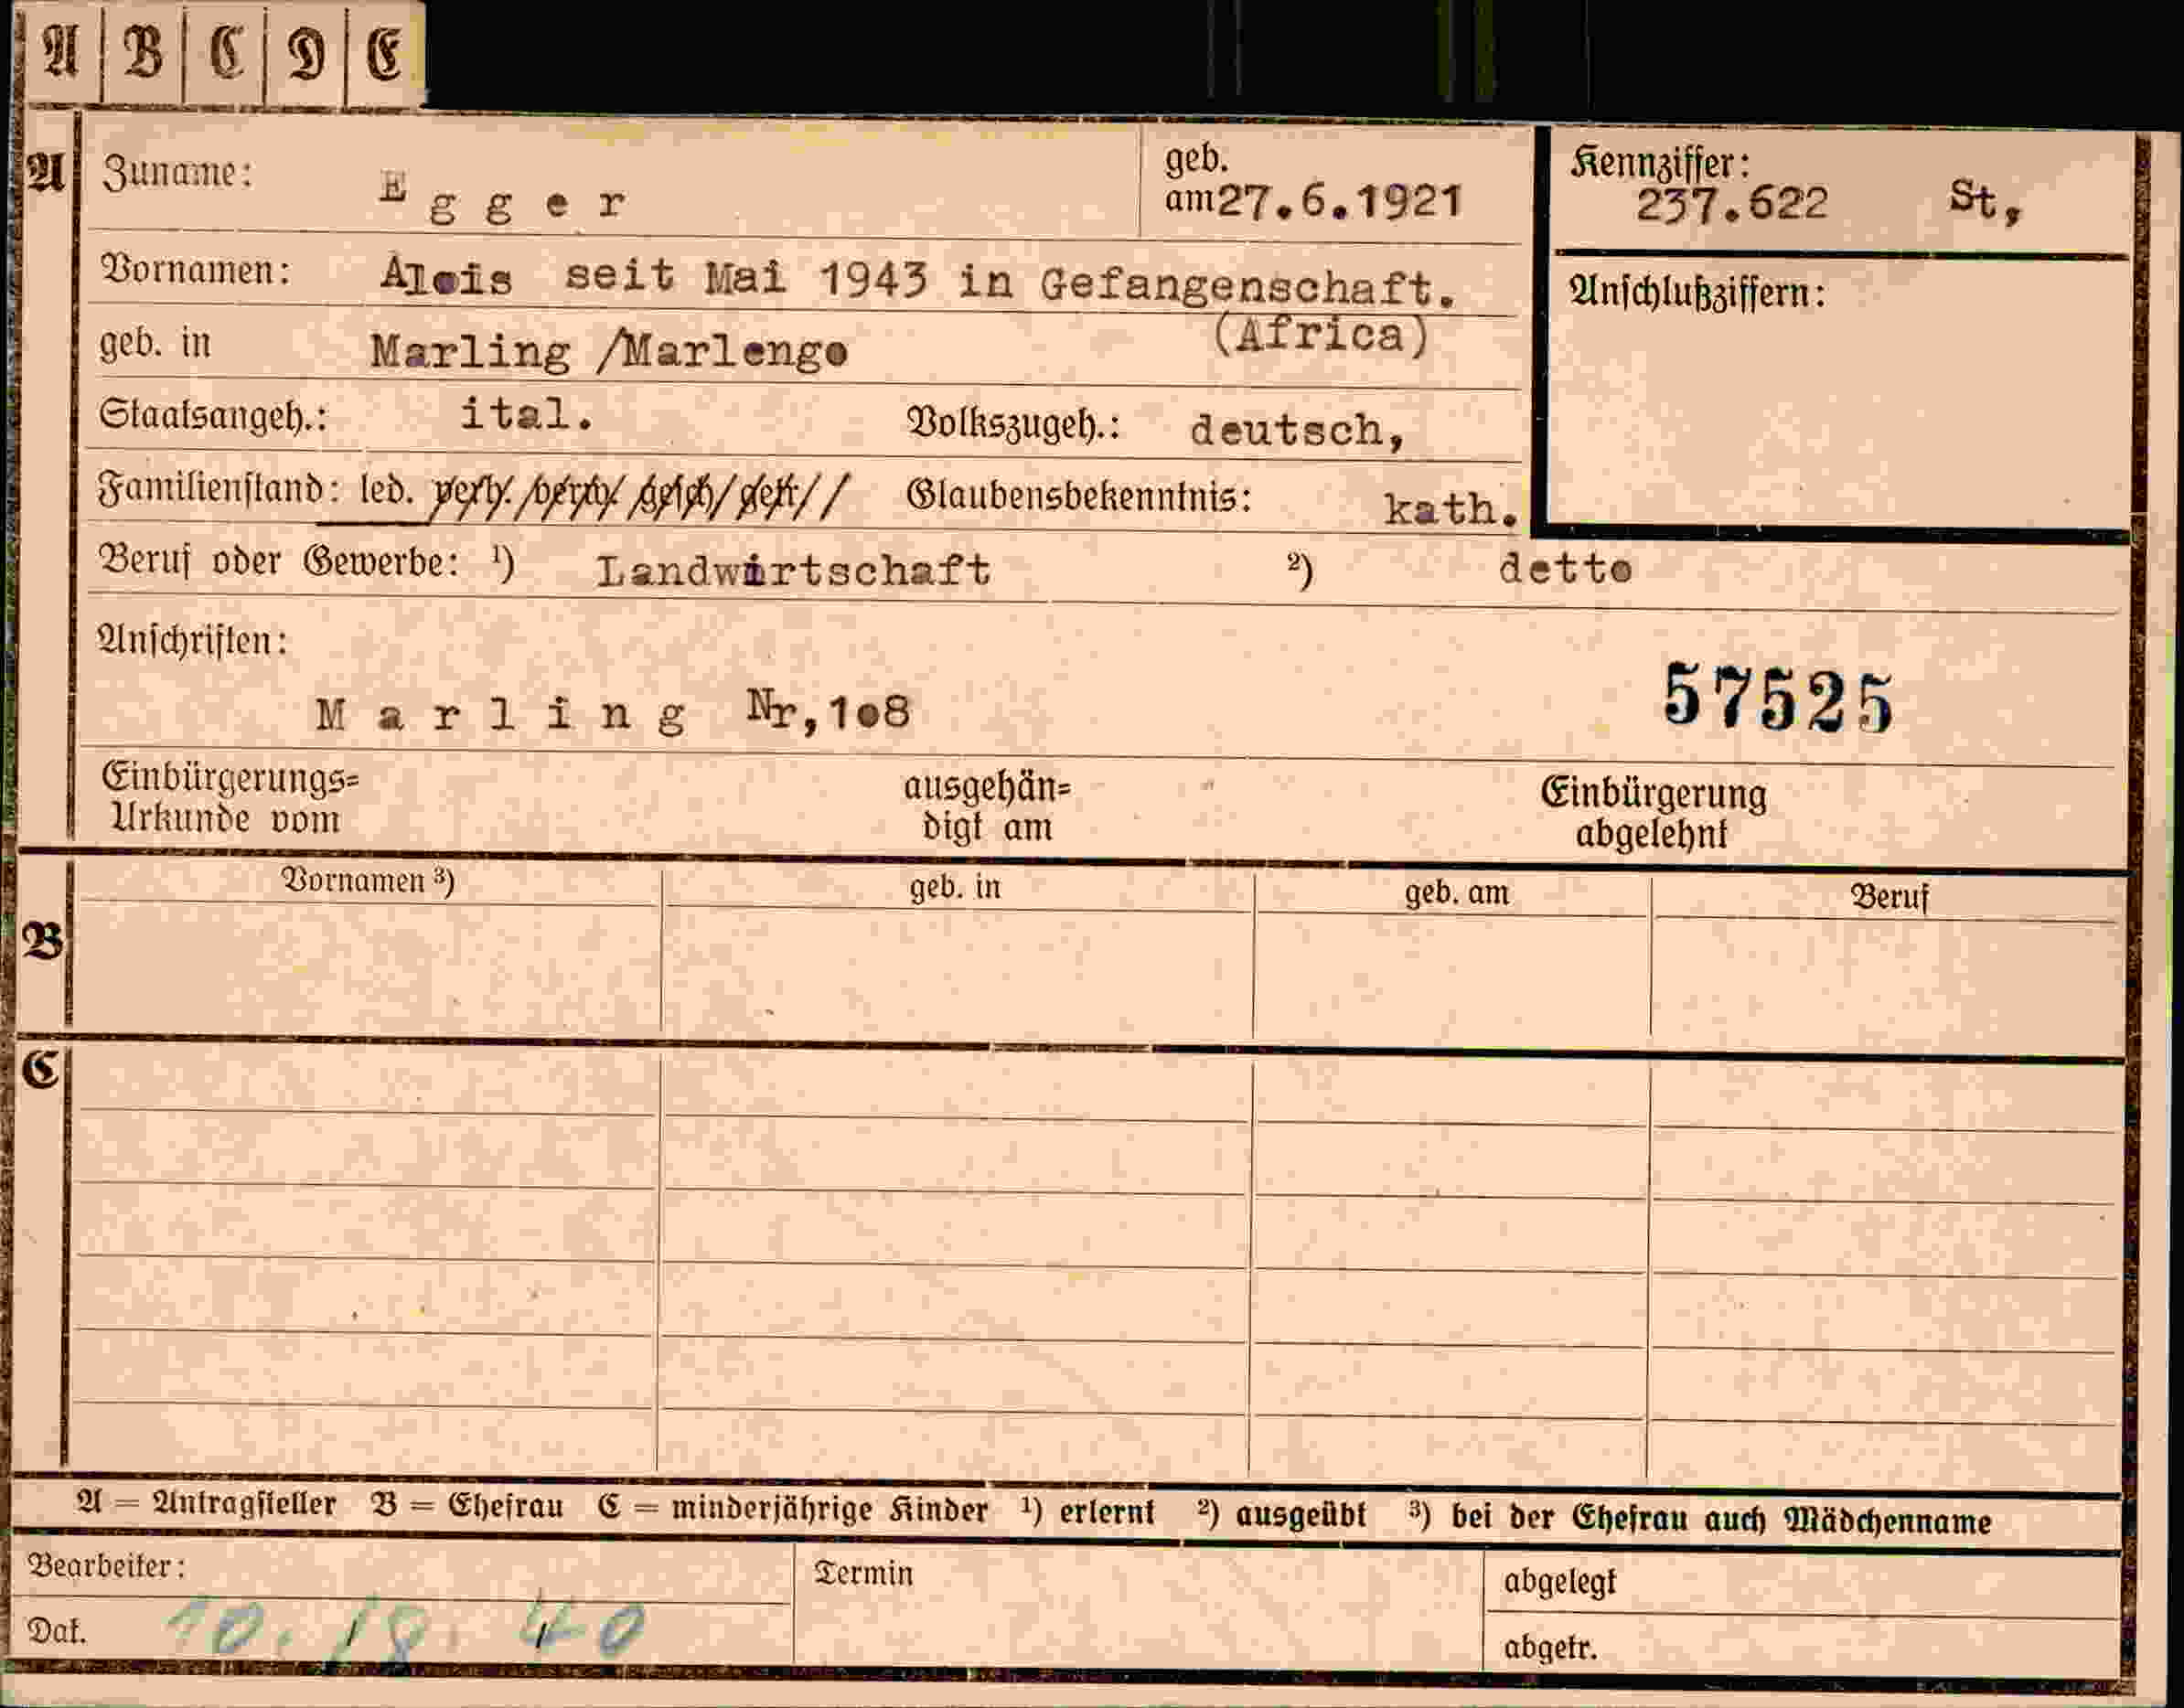 A B C D E
A Zuname: Egger geb. am 27.6.1921 Kennziffer: 237.622 St,
Vornamen: Alois seit Mai 1943 in Gefangenschaft. Anschlußziffern:
(Africa)
geb. in Marling /Marlengo
Staatsangeh.: ital. Volkszugeh.: deutsch,
Familienstand: led. Glaubensbekenntnis: kath.
Beruf oder Gewerbe: ¹) Landwirtschaft ²) detto
Anschriften:
Marling Nr,108 57525
Einbürgerungs= ausgehän= Einbürgerung
Urkunde vom digt am abgelehnt
B Vornamen ³) geb. in geb. am Beruf
C
A = Antragsteller B = Ehefrau C = minderjährige Kinder ¹) erlernt ²) ausgeübt ³) bei der Ehefrau auch Mädchenname
Bearbeiter: Termin abgelegt
Dat. 10. 40 abgetr.